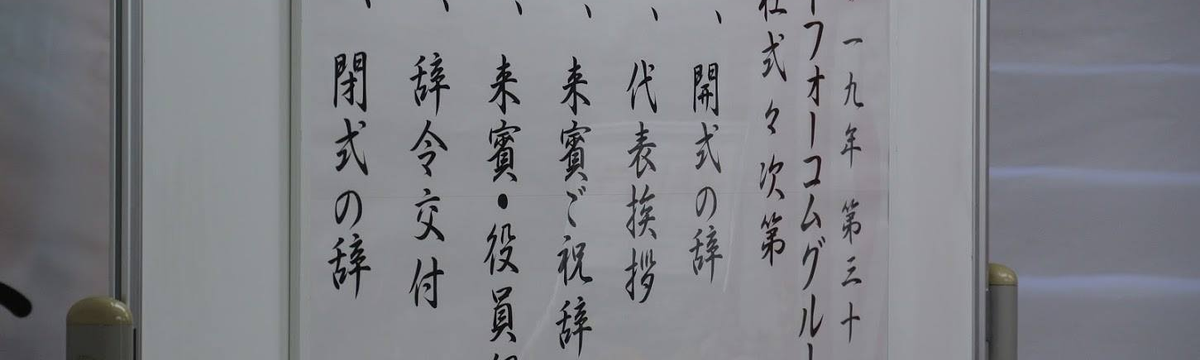 一九年 第三十
フォーコムグルー
社式々次第
、開式の辞
、代表挨拶
、来賓ご祝辞
、来賓・役員
、辞令交付
、閉式の辞